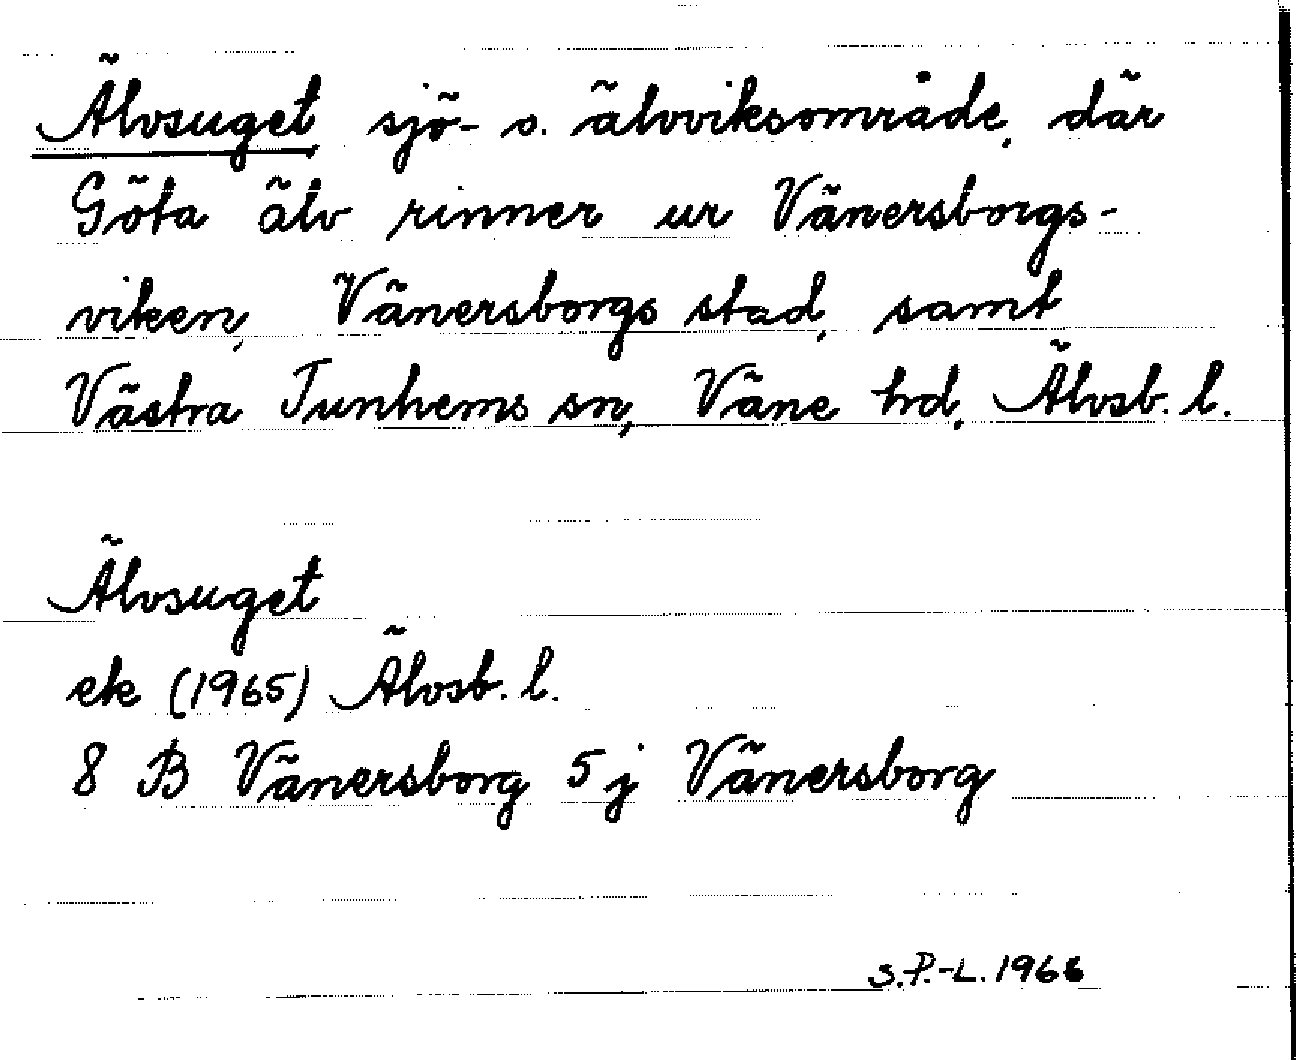 Älvsuget, sjö- o. älvviksområde, där
Göta älv rinner ur Vänersborgs-
viken, Vänersborgs stad, samt
Västra Tunhems sn, Väne hd, Älvsb. l.
Älvsuget
ek (1965) Älvsb. l.
8 B Vänersborg 5 j Vänersborg
S.P.-L. 1966